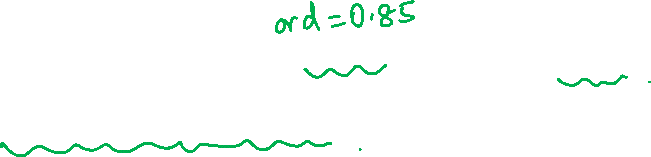 ord = 0.85